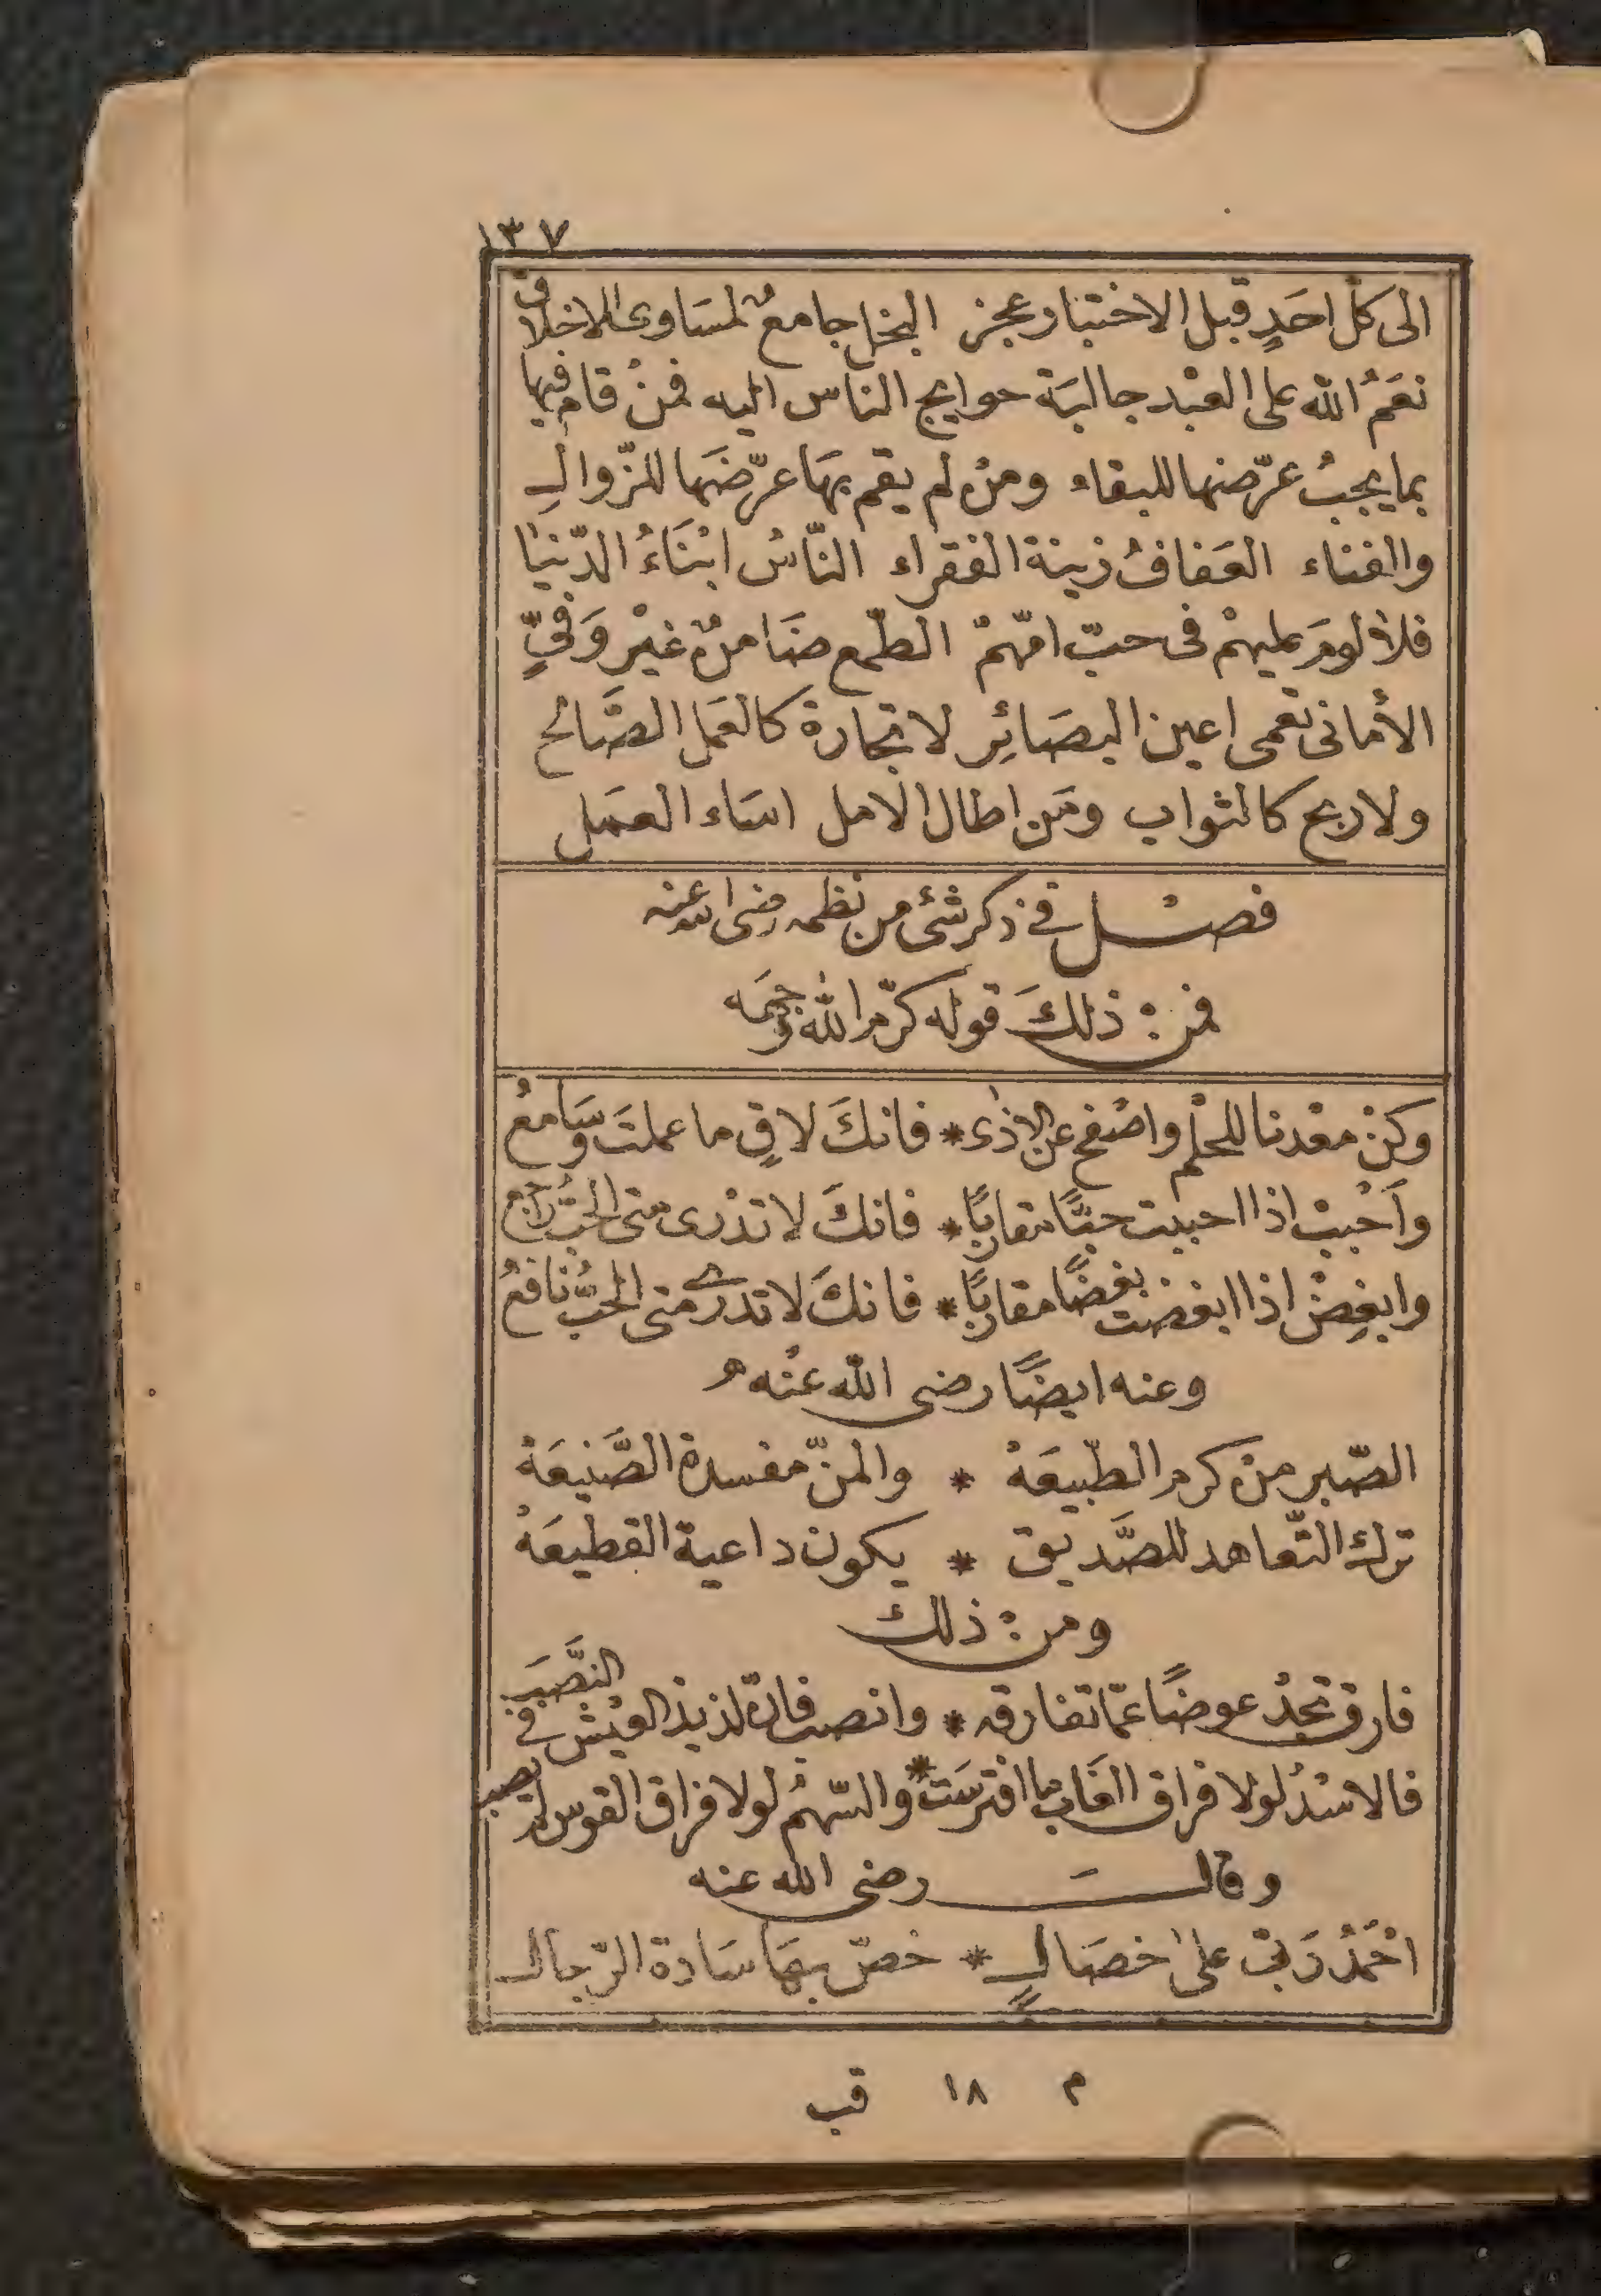 ١٣٧
الى كلّ احَدٍ قبل الاختبار عجز البخل جامعٌ لمسَاوئ الاخلاق
نعَمُ الله على العبْد جالبَة حوايج الناس اليه فمنْ قام فيها
بما يجبُ عرّضها للبقاء ومنْ لم يقم بهَا عرّضَها للزّوالِ
والفناء العَفافُ زينة الفقراء النّاسُ ابْنَاءُ الدّنيَا
فلا لومَ عليهمْ فى حبّ امّهمْ الطّمع ضَامنٌ غيْر وَفيٍّ
الأمانى تعمى اعين البصَائِر لا تجارة كالعَمل الصَّالح
ولا ربح كالثواب ومَن اطال الامل اسَاء العمَل
فصل في ذكر شئ من نظمه رضى الله عنه
فمن ذلكَ قوله كرّم الله وجهَه
وكنْ معْدنا للحلْم واصْفح عن الاذى * فانكَ لاقٍ ما عملتَ وسَامعُ
وأَحْببْ اذا احببت حبًّا مقاربًا * فانكَ لا تدْرى متى الحبُّ راجع
وابغِضْ اذا ابغضت بغضًا مقاربًا * فانكَ لا تدرى متى الحبُّ نافعُ
وعنه ايضًا رضى الله عنْه
الصّبر منْ كرم الطّبيعَهْ * والمنّ مفسدة الصَّنيعَهْ
ترك التّعاهد للصَّديق * يكون داعية القطيعَهْ
ومن ذلك
فارق تجدْ عوضًا عمّا تفارقه * وانصب فانّ لذيذ العيْش في النَّصَب
فالاسْدُ لولا فراق الغَاب ما افترسَتْ * والسّهمُ لولا فراق القوس لم يصب
وقالَ رضى الله عنه
احْمَدُ رَبّى علىٰ خصَالٍ * خصّ بهَا سَادة الرّجال
م ١٨ قب